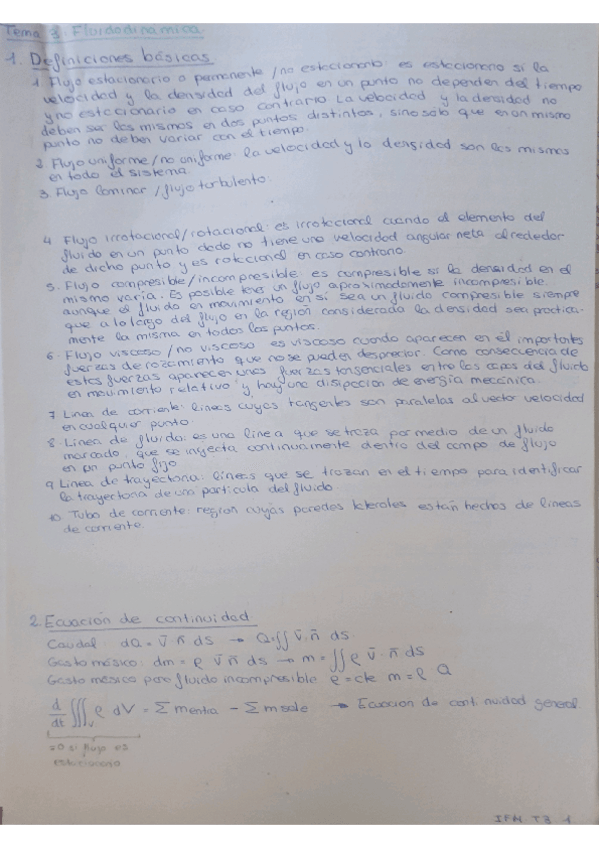 Tema 3. Fluidodinamica
1. Definiciones básicas
1. Flujo estacionario o permanente / no estacionario: es estacionario si la
velocidad y la densidad del flujo en un punto no dependen del tiempo
y no estacionario en caso contrario. La velocidad y la densidad no
deben ser las mismas en dos puntos distintos, sino sólo que en un mismo
punto no deben variar con el tiempo.
2. Flujo uniforme / no uniforme: la velocidad y la densidad son las mismas
en todo el sistema.
3. Flujo laminar / flujo turbulento:
4. Flujo irrotacional / rotacional: es irrotacional cuando el elemento del
fluido en un punto dado no tiene una velocidad angular neta alrededor
de dicho punto y es rotacional en caso contrario.
5. Flujo compresible / incompresible: es compresible si la densidad en el
mismo varia. Es posible un flujo aproximadamente incompresible
aunque el fluido en movimiento en sí sea un fluido compresible siempre
que a lo largo del flujo en la región considerada la densidad sea practica-
mente la misma en todos los puntos.
6. Flujo viscoso / no viscoso: es viscoso cuando aparecen en él importantes
fuerzas de rozamiento que no se pueden despreciar. Como consecuencia de
estas fuerzas aparecen unas fuerzas tangenciales entre las capas del fluido
en movimiento relativo y hay una disipación de energía mecánica.
7. Linea de corriente: lineas cuyas tangentes son paralelas al vector velocidad
en cualquier punto.
8. Línea de fluido: es una linea que se traza por medio de un fluido
marcado, que se inyecta continuamente dentro del campo de flujo
en un punto fijo
9. Linea de trayectoria: líneas que se trazan en el tiempo para identificar
la trayectoria de una partícula del fluido.
10. Tubo de corriente: region cuyas paredes laterales están hechos de lineas
de corriente.
2. Ecuación de continuidad
Caudal: dQ = v̄ · n̄ ds → Q = ∬ v̄ · n̄ ds
Gasto másico: dm = ρ v̄ n̄ ds → m = ∬ ρ v̄ · n̄ ds
Gasto másico para fluido incompresible ρ = cte m = ρ Q
d/dt ∭v ρ dV = Σ mentra - Σ msale → Ecuacion de continuidad general
=0 si flujo es
estacionario
IFN T3 1